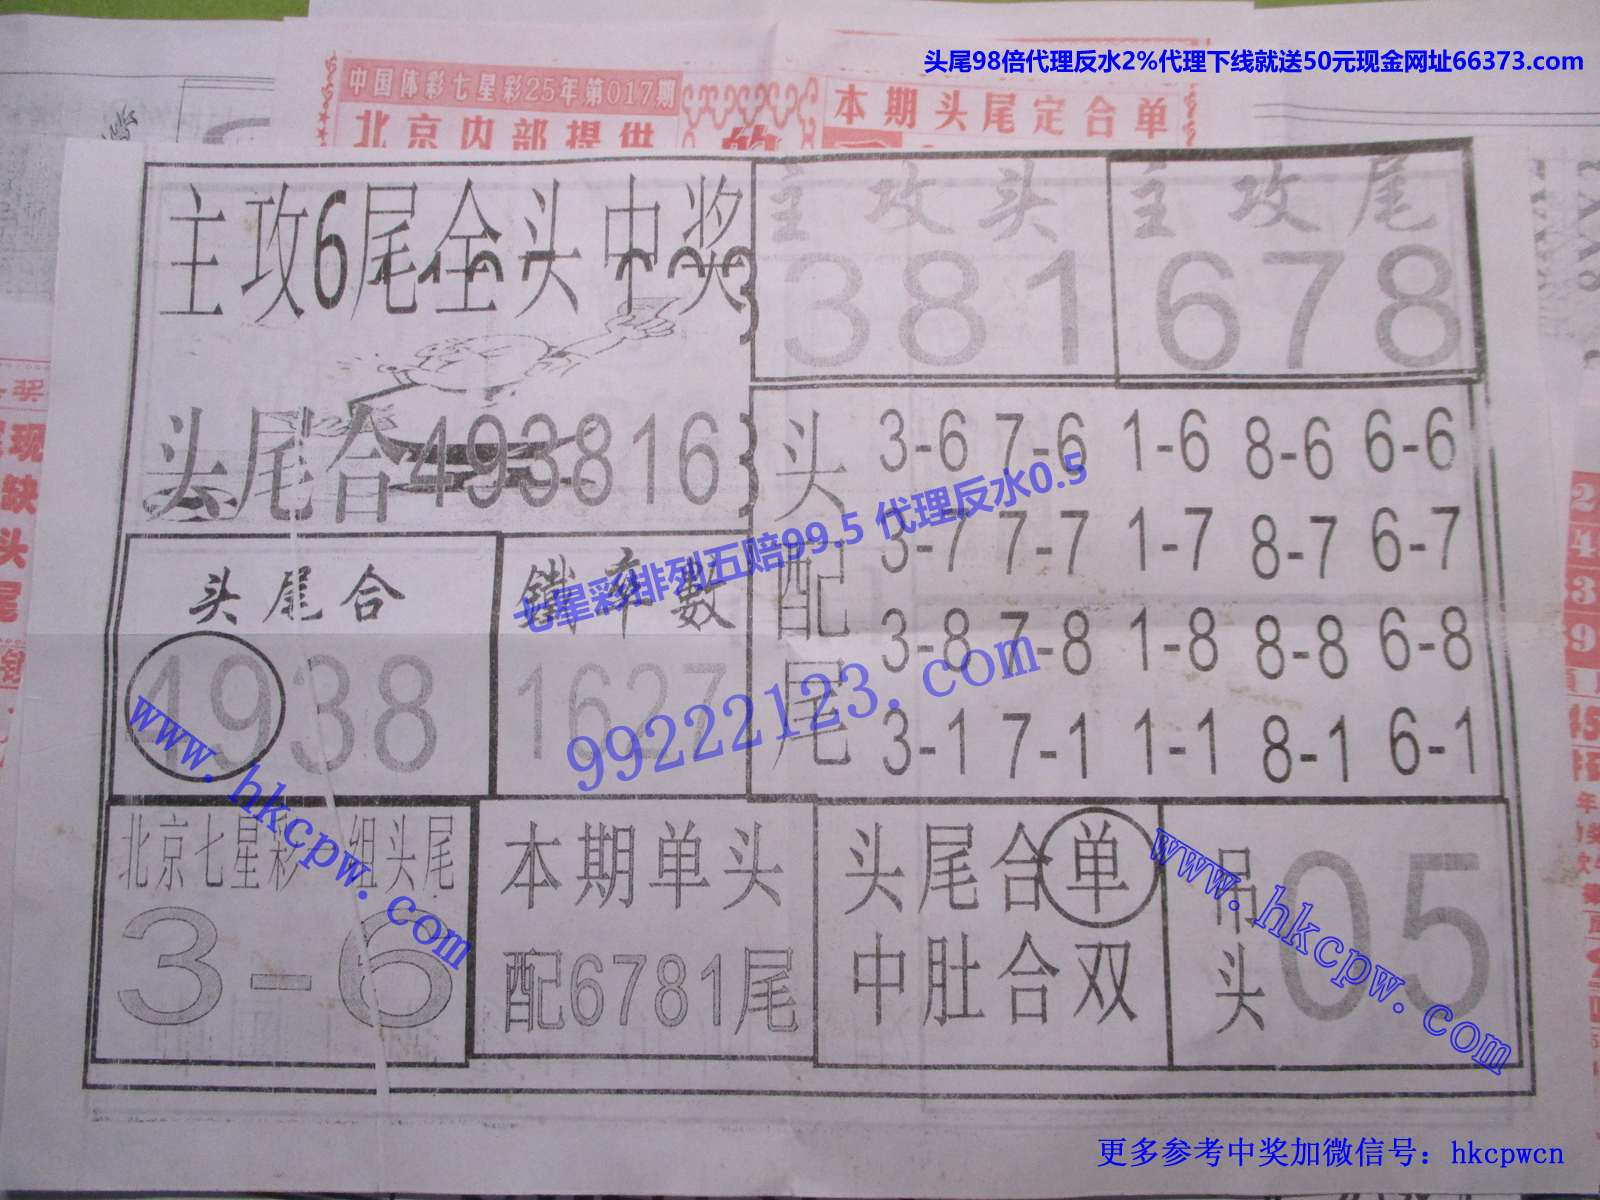 头尾98倍代理反水2%代理下线就送50元现金网址66373.com
中国体彩七星彩25年第017期
北京内部提供
本期头尾定合单
主攻6尾全头中奖
主攻头
381
主攻尾
678
头尾合493816
头配尾
3-6 7-6 1-6 8-6 6-6
3-7 7-7 1-7 8-7 6-7
3-8 7-8 1-8 8-8 6-8
3-1 7-1 1-1 8-1 6-1
七星彩排列五赔99.5 代理反水0.5
头尾合
4938
鐵率數
1627
99222123.com
www.hkcpw.com
北京七星彩一组头尾
3-6
本期单头
配6781尾
头尾合单
中肚合双
吊头
05
www.hkcpw.com
现缺头尾
更多参考中奖加微信号：hkcpwcn